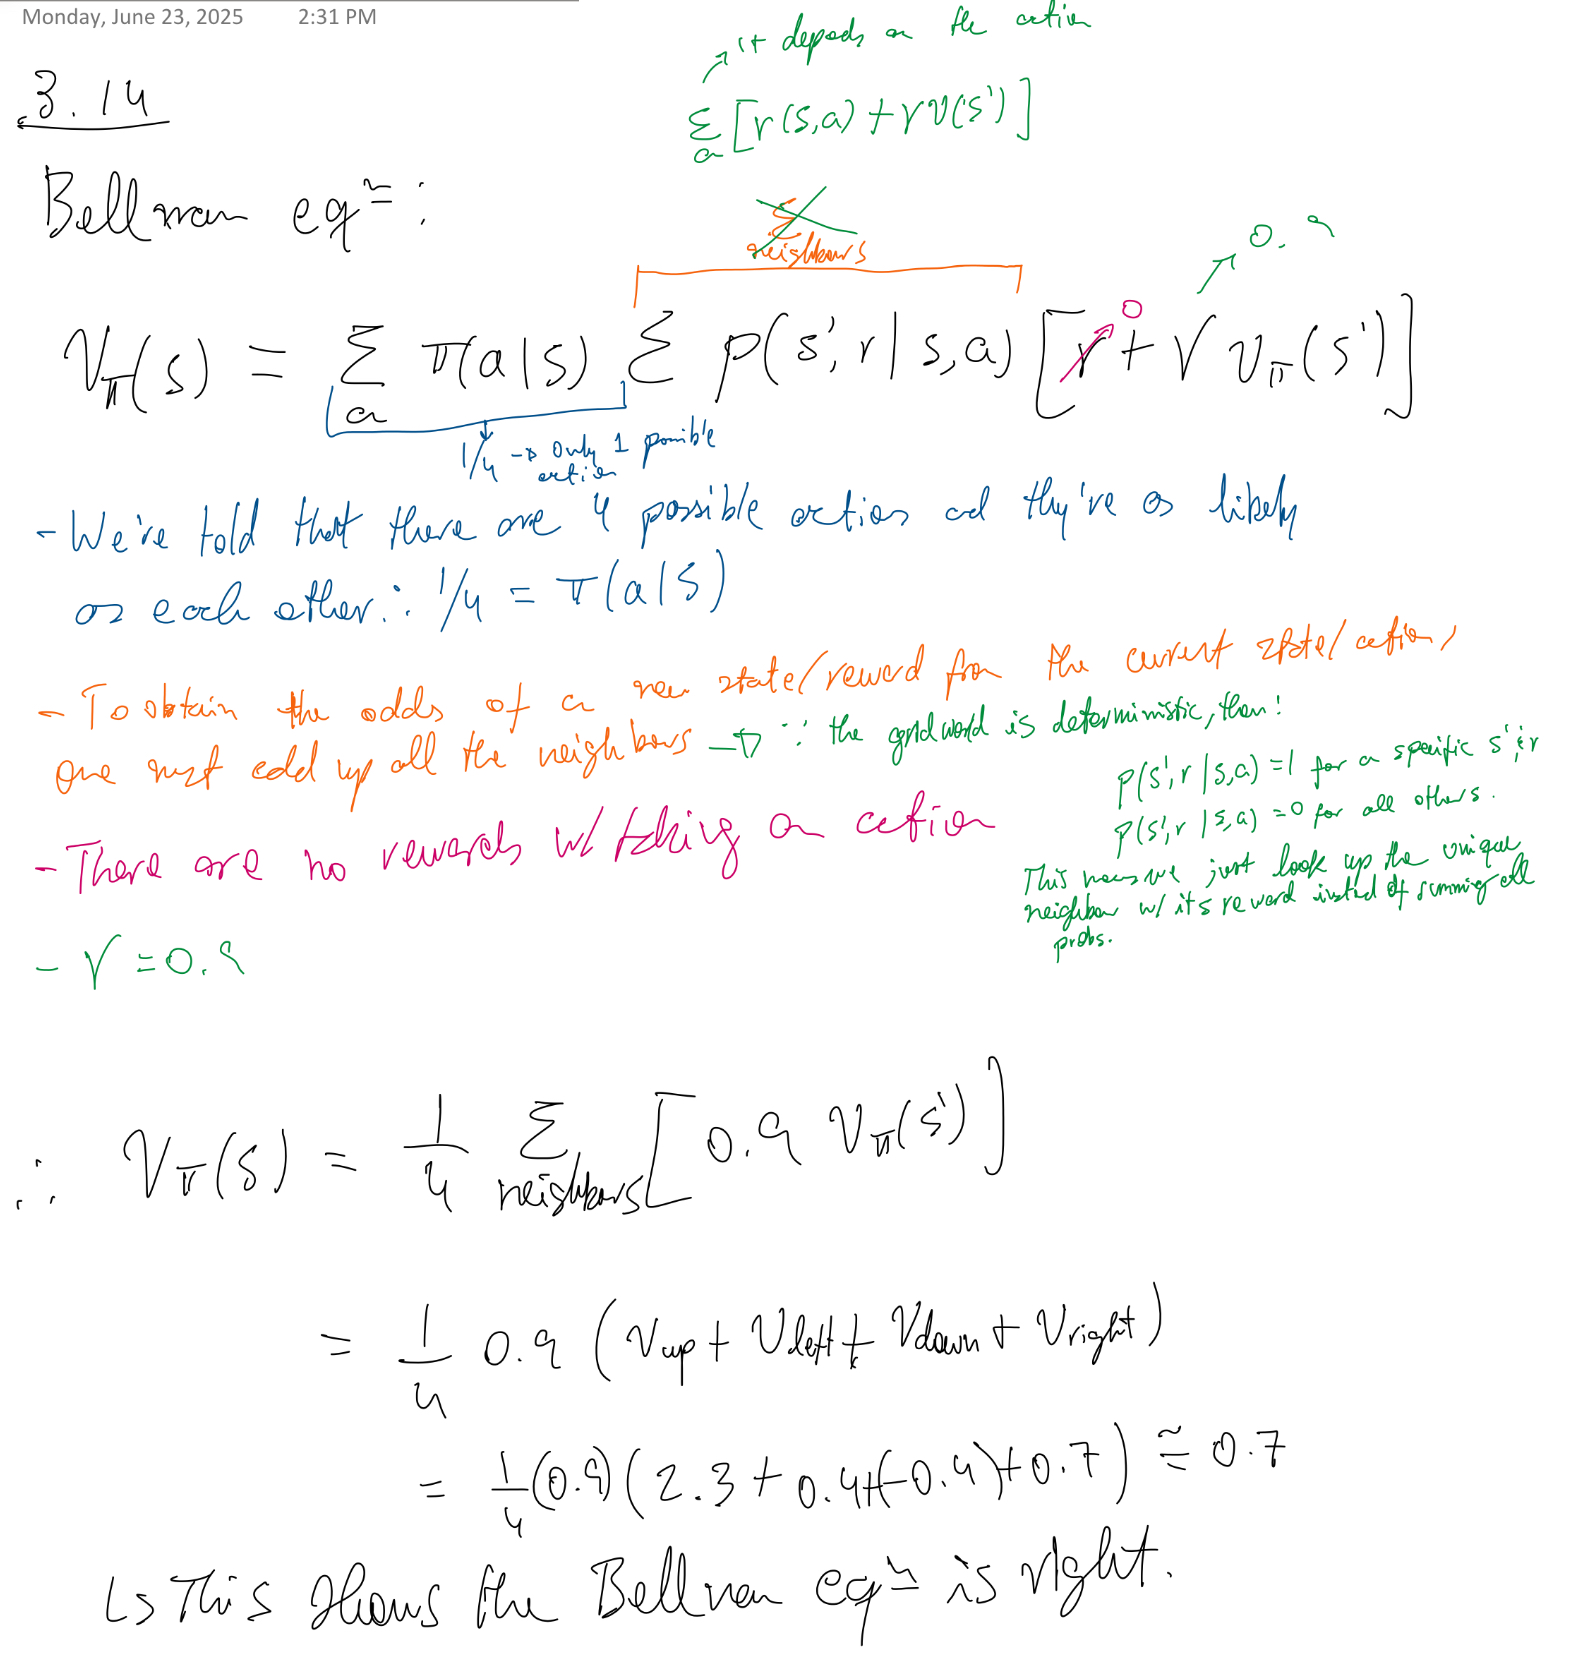 Monday, June 23, 2025 2:31 PM
3.14
it depends on the action
Σ_a [r(s,a) + γV(s')]
Bellman eqⁿ:
Σ neighbours
0.9
V_π(s) = Σ_a π(a|s) Σ p(s',r|s,a) [r + γ v_π(s')]
0
1/4 → only 1 possible
action
- We're told that there are 4 possible actions and they're as likely
as each other ∴ 1/4 = π(a|s)
- To obtain the odds of a new state/reward from the current state/action,
one must add up all the neighbors → ∵ the gridworld is deterministic, then:
p(s',r|s,a) = 1 for a specific s' & r
p(s',r|s,a) = 0 for all others.
This means we just look up the unique
neighbor w/ its reward instead of summing all
probs.
- There are no rewards w/ taking an action
- γ = 0.9
∴ V_π(s) = 1/4 Σ_neighbors [0.9 V_π(s')]
= 1/4 0.9 (Vup + Vleft + Vdown + Vright)
= 1/4 (0.9) (2.3 + 0.4 + (-0.4) + 0.7) ≅ 0.7
↳ This shows the Bellman eqⁿ is right.